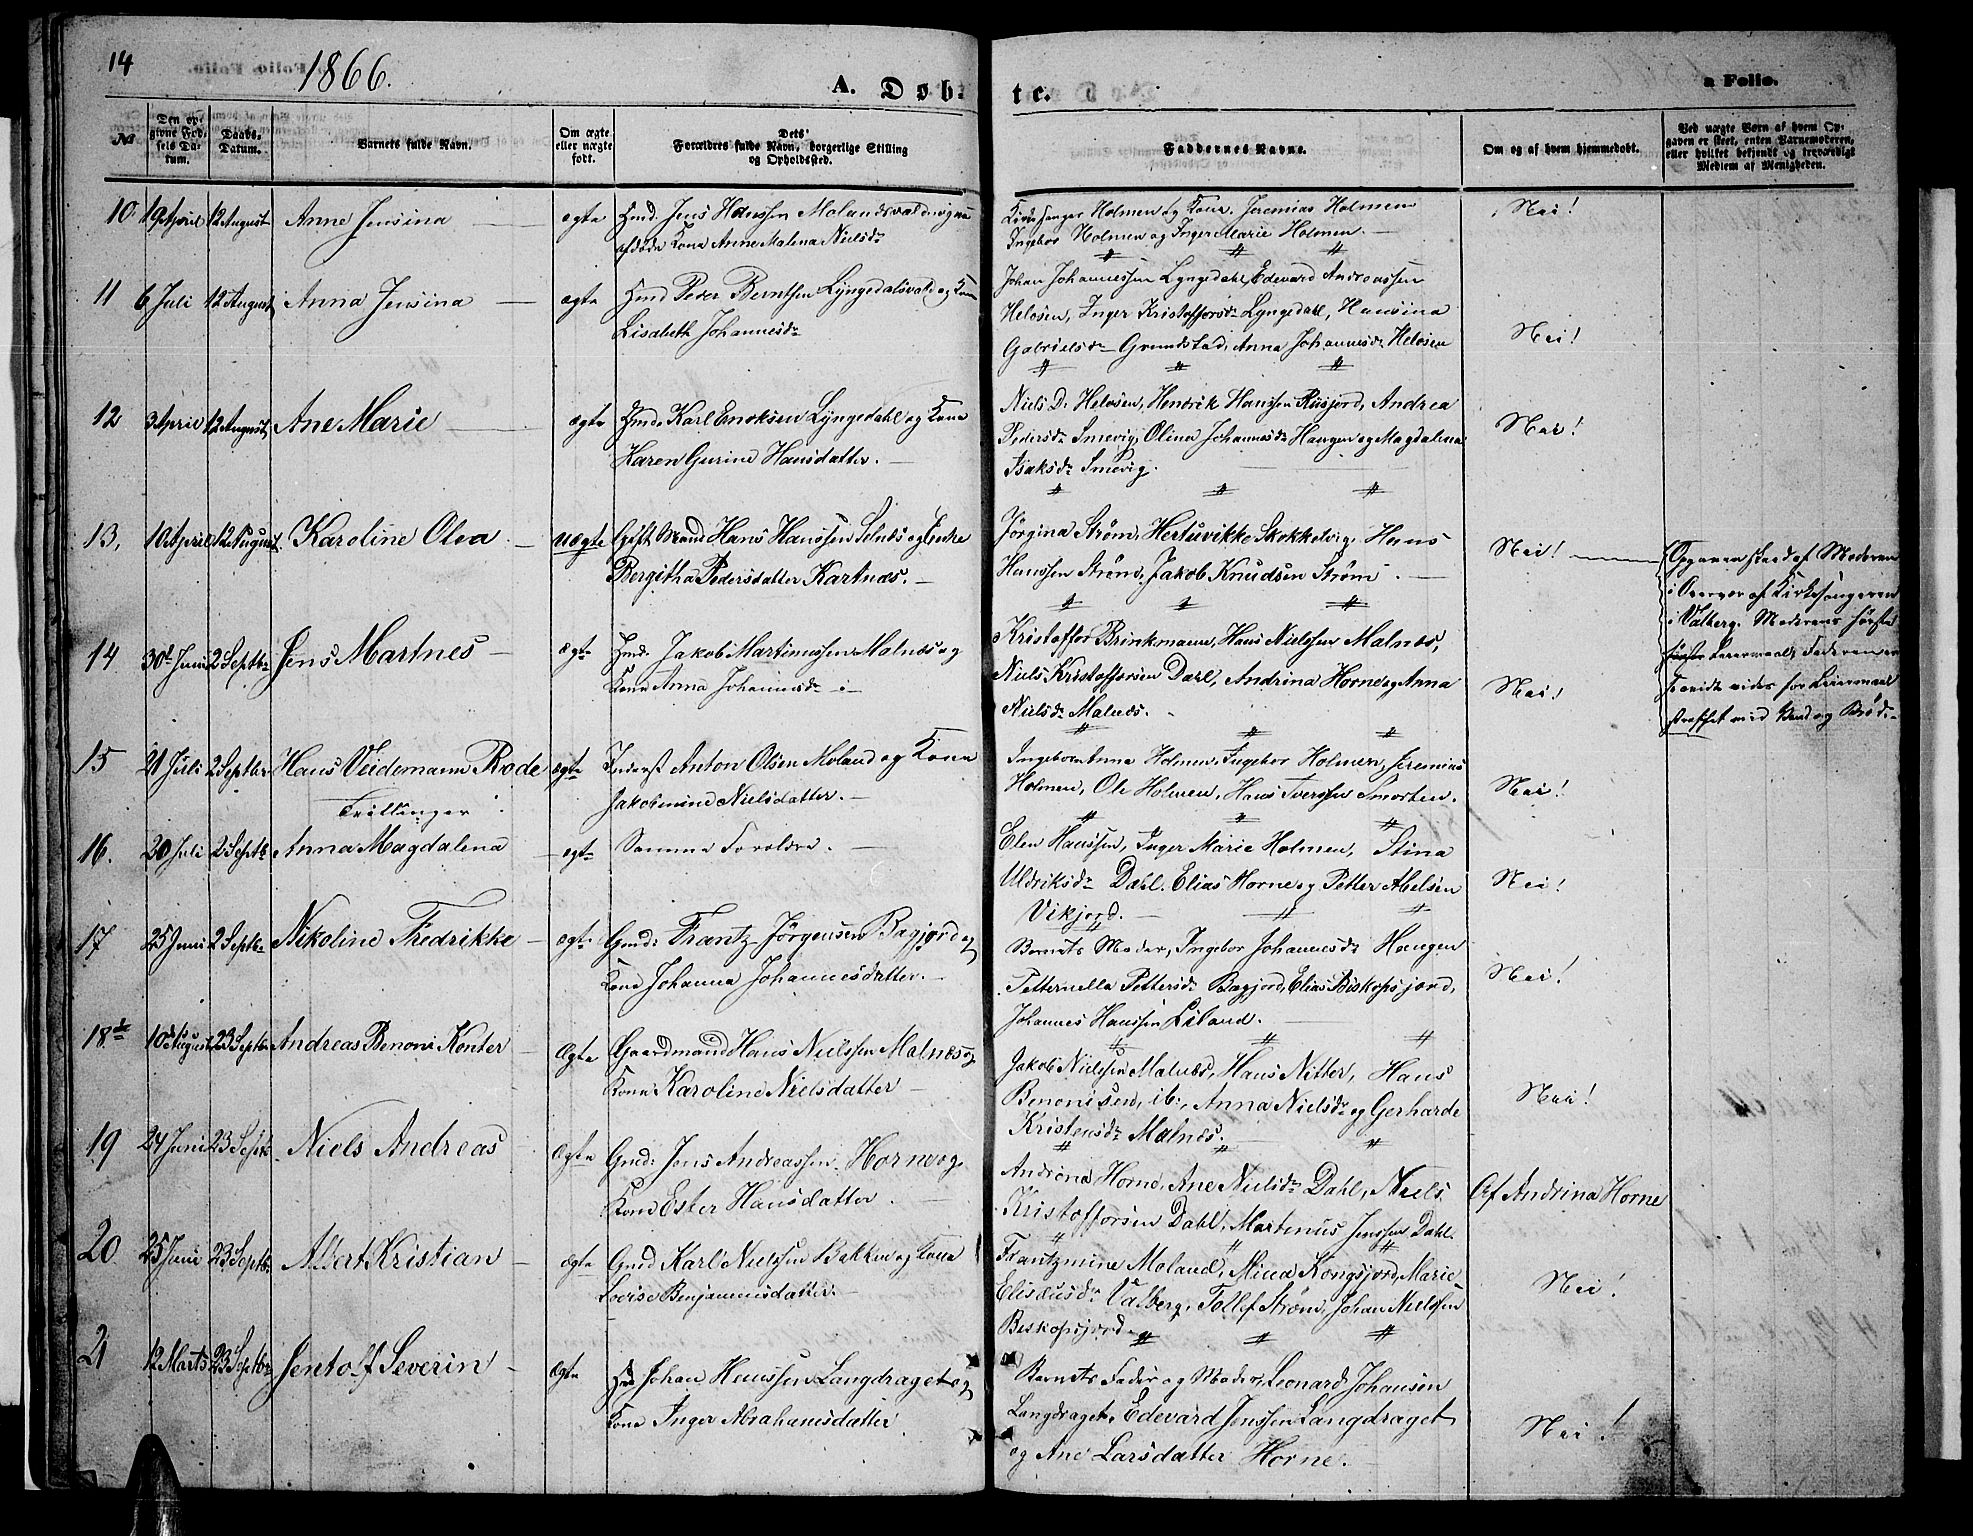 14
1866.
A. Døbte.
a Folio.
№
Den opgivne Fødsels Datum.
Daabs Datum.
Barnets fulde Navn.
Om ægte eller uægte født.
Dets' Forældres fulde Navn, borgerlige Stilling og Opholdssted.
Faddernes Navne.
Om og af hvem hjemmedøbt.
Ved uægte Børn af hvem Opgaven er skeet, enten Barnemoderen, eller hvilket bekjendt og troværdigt Medlem af Menigheden.
10. 19 April 12 August Anne Jensina — ægte Hmd. Jens Hanssen Molandsvald og
afdøde Kone Anne Malena Nielsdr
Kirkesanger Holmen og Kone. Jeremias Holmen
Ingebor Holmen og Inger Marie Holmen. —
Nei!
11 6 Juli 12 August Anna Jensina — ægte Hmd Peder Berntsen Lyngedalsvald og Kone
Lisabeth Johannesdr
Johan Johannessen Lyngedahl, Edevard Andreassen
Helosen, Inger Kristoffersdr Lyngedahl, Hansina
Gabrielsdr Grundstad, Anna Johannesdr Helosen
Nei!
12 3 April 12 August Ane Marie — ægte Hmd. Karl Enoksen Lyngedahl og Kone
Karen Gurine Hansdatter. —
Niels D. Helosen, Hendrik Hanssen Rusjord, Andrea
Pedersdr Smevig, Olina Johannesdr Haugen og Magdalena
Isaksdr Smevig.
Nei!
13. 10 April 12 August Karoline Olea — uægte Gift Mand Hans Hanssen Selnæs og Enke
Bergitha Pedersdatter Kartnæs. —
Jørgina Strøm, Hertuvikke Skokkelvig, Hans
Hanssen Strøm, Jakob Knudsen Strøm. —
Nei! —
Opgaven skeed af Moderen
i Overvær af Kirkesangeren
i Valberg. Moderens første
Leiermaal; Faderen er
straffet med Vand og Brød. —
14 30te Juni 2 Septbr Jens Martnes — ægte Hmd. Jakob Martinussen Malnæs og
Kone Anna Johannesdr —
Kristoffer Brinkmann, Hans Nielssen Malnæs,
Niels Kristoffersen Dahl, Andrina Horne og Anna
Nielsdr Malnæs.
Nei!
15 21 Juli 2 Septbr Hans Veidemann Rode ægte Inderst Anton Olsen Moland og Kone
Jakobmine Nielsdatter. —
Tvillinger
Ingeboranna Holmen, Ingebor Holmen, Jeremias
Holmen, Ole Holmen, Hans Iverssen Smorten.
Nei!
16. 20 Juli 2 Septbr Anna Magdalena — ægte Samme Forældre. —
Elen Hanssen, Inger Marie Holmen, Stina
Uldriksdr Dahl. Elias Horne og Petter Abelsen
Vikjord. —
Nei!
17 25 Juni 2 Septbr Nikoline Fredrikke — ægte Gmd: Frantz Jørgensen Bagjord og
Kone Johanna Johannesdatter. —
Barnets Moder, Ingebor Johannesdr Haugen
Petternella Pettersdr Bagjord, Elias Biskopsjord,
Johannes Hanssen Liland. —
Nei!
18de 10de August 23 Septbr Andreas Benoni Konter — Ægte Gaardmand Hans Nielssen Malnæs og
Kone Karoline Nielsdatter —
Jakob Nielssen Malnæs, Hans Nitter, Hans
Benonisen, ib:, Anna Nielsdr og Gerharde
Kristensdr Malnæs.
Nei!
19 24 Juni 23 Septbr Niels Andreas Ægte Gmd: Jens Andreassen Horne og
Kone Ester Hansdatter. —
Andrina Horne, Ane Nielsdr Dahl, Niels
Kristoffersen Dahl, Martinus Jenssen Dahl.
Af Andrina Horne
20. 25 Juni 23 Septbr. Albert Kristian — ægte Gmd Karl Nielssen Bakken og Kone
Lovise Benjaminsdatter. —
Frantzmine Moland, Mina Kongsjord, Marie
Eliseusdr Valberg, Tollef Strøm, Johan Nielssen
Biskopsjord
Nei!
21 12 Marts 23 Septbr Jentolf Severin — ægte Hmd Johan Hanssen Langdraget og
Kone Inger Abrahamsdatter
Barnets Fader og Moder, Leonard Johansen
Langdraget, Edevard Jenssen Langdraget
og Ane Larsdatter Horne. —
Nei!